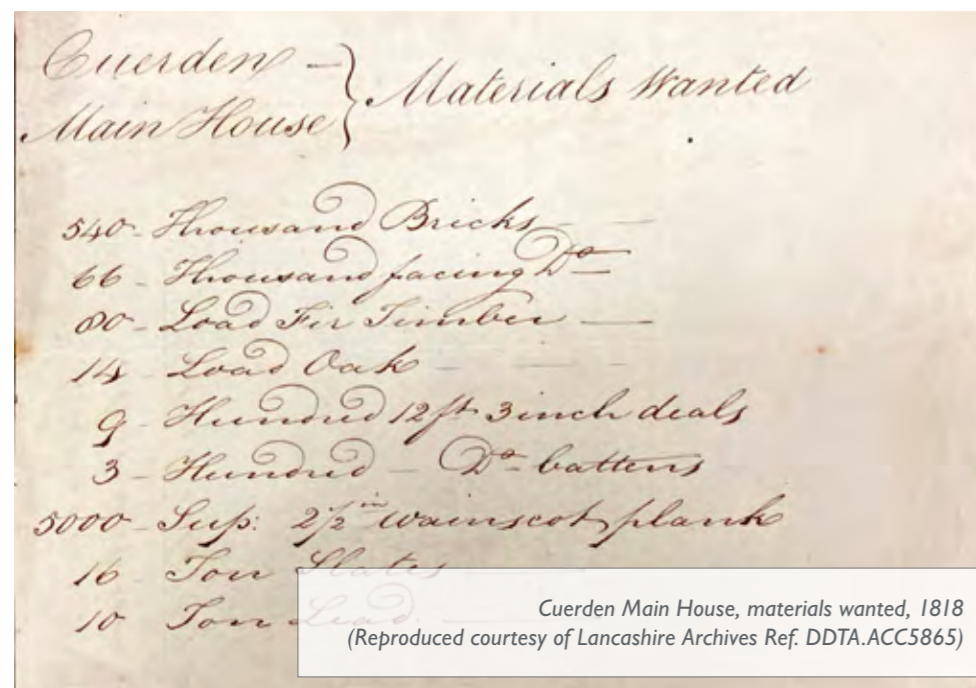 Cuerden –
Main House } Materials Wanted
540 - Thousand Bricks — —
66 - Thousand facing Do —
80 - Load Fir Timber —
14 - Load Oak — — —
9 - Hundred 12ft 3 inch deals
3 - Hundred — Do battens
5000 - Sup: 2 1/2 in wainscot plank
16 - Ton Slates —
10 - Ton Lead. —
Cuerden Main House, materials wanted, 1818
(Reproduced courtesy of Lancashire Archives Ref. DDTA.ACC5865)